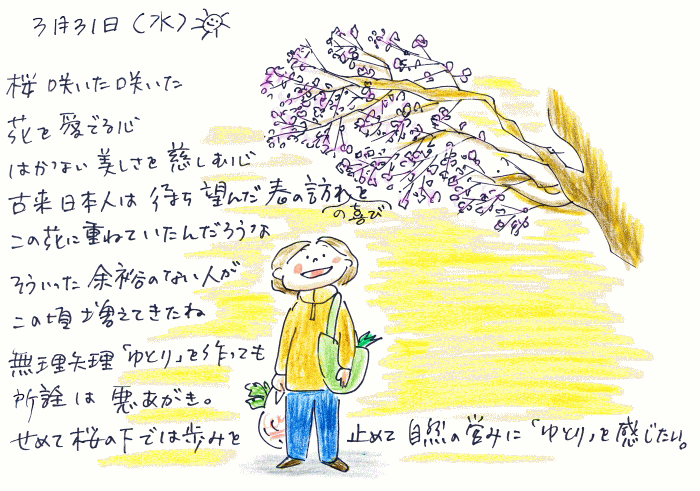 3月31日（水）
桜 咲いた 咲いた
花を愛でる心
はかない美しさを慈しむ心
古来日本人は待ち望んだ春の訪れを
の喜び
この花に重ねていたんだろうな
そういった余裕のない人が
この頃増えてきたね
無理矢理「ゆとり」を作っても
所詮は悪あがき。
せめて桜の下では歩みを 止めて自然の営みに「ゆとり」を感じたい。